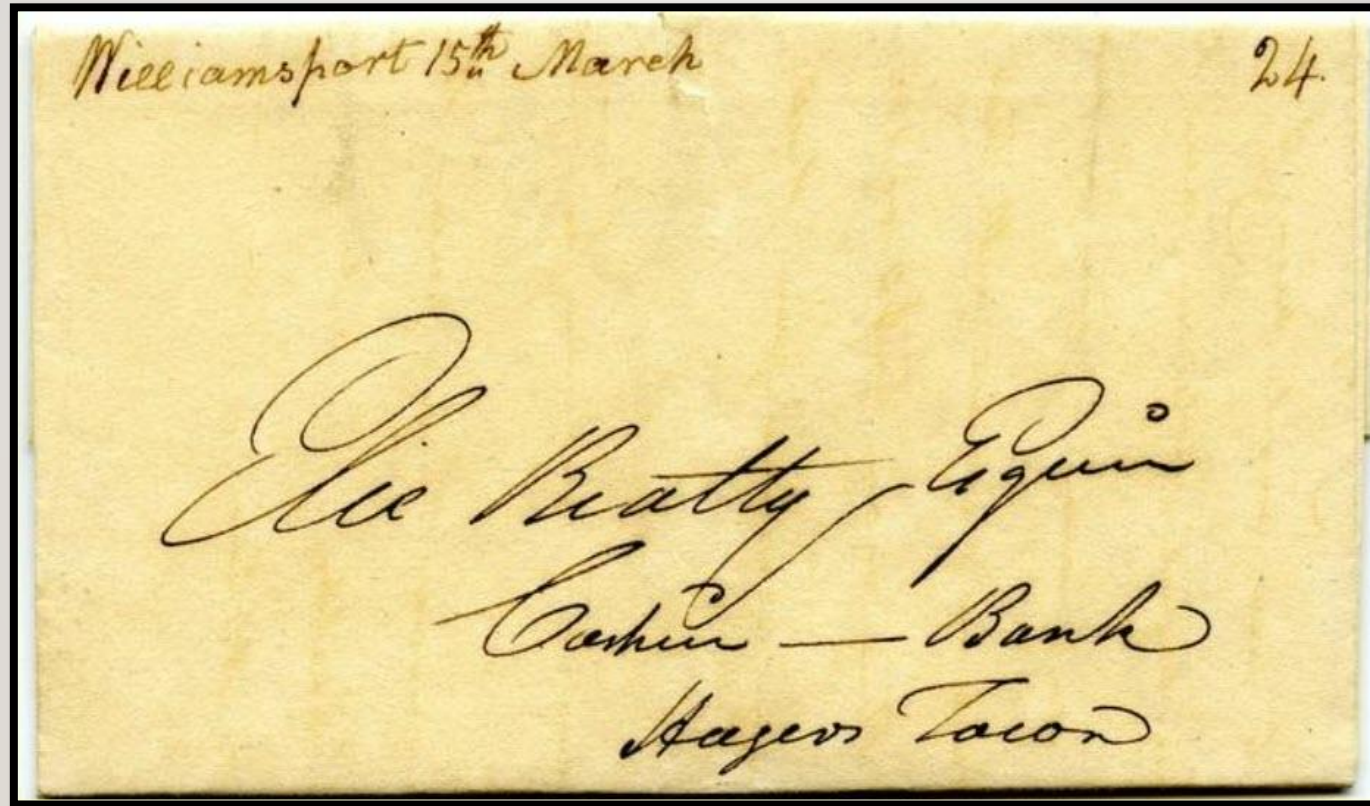 Williamsport 15th March 24.
Elie Beatty Esquire
Cashier — Bank
Hagers Town